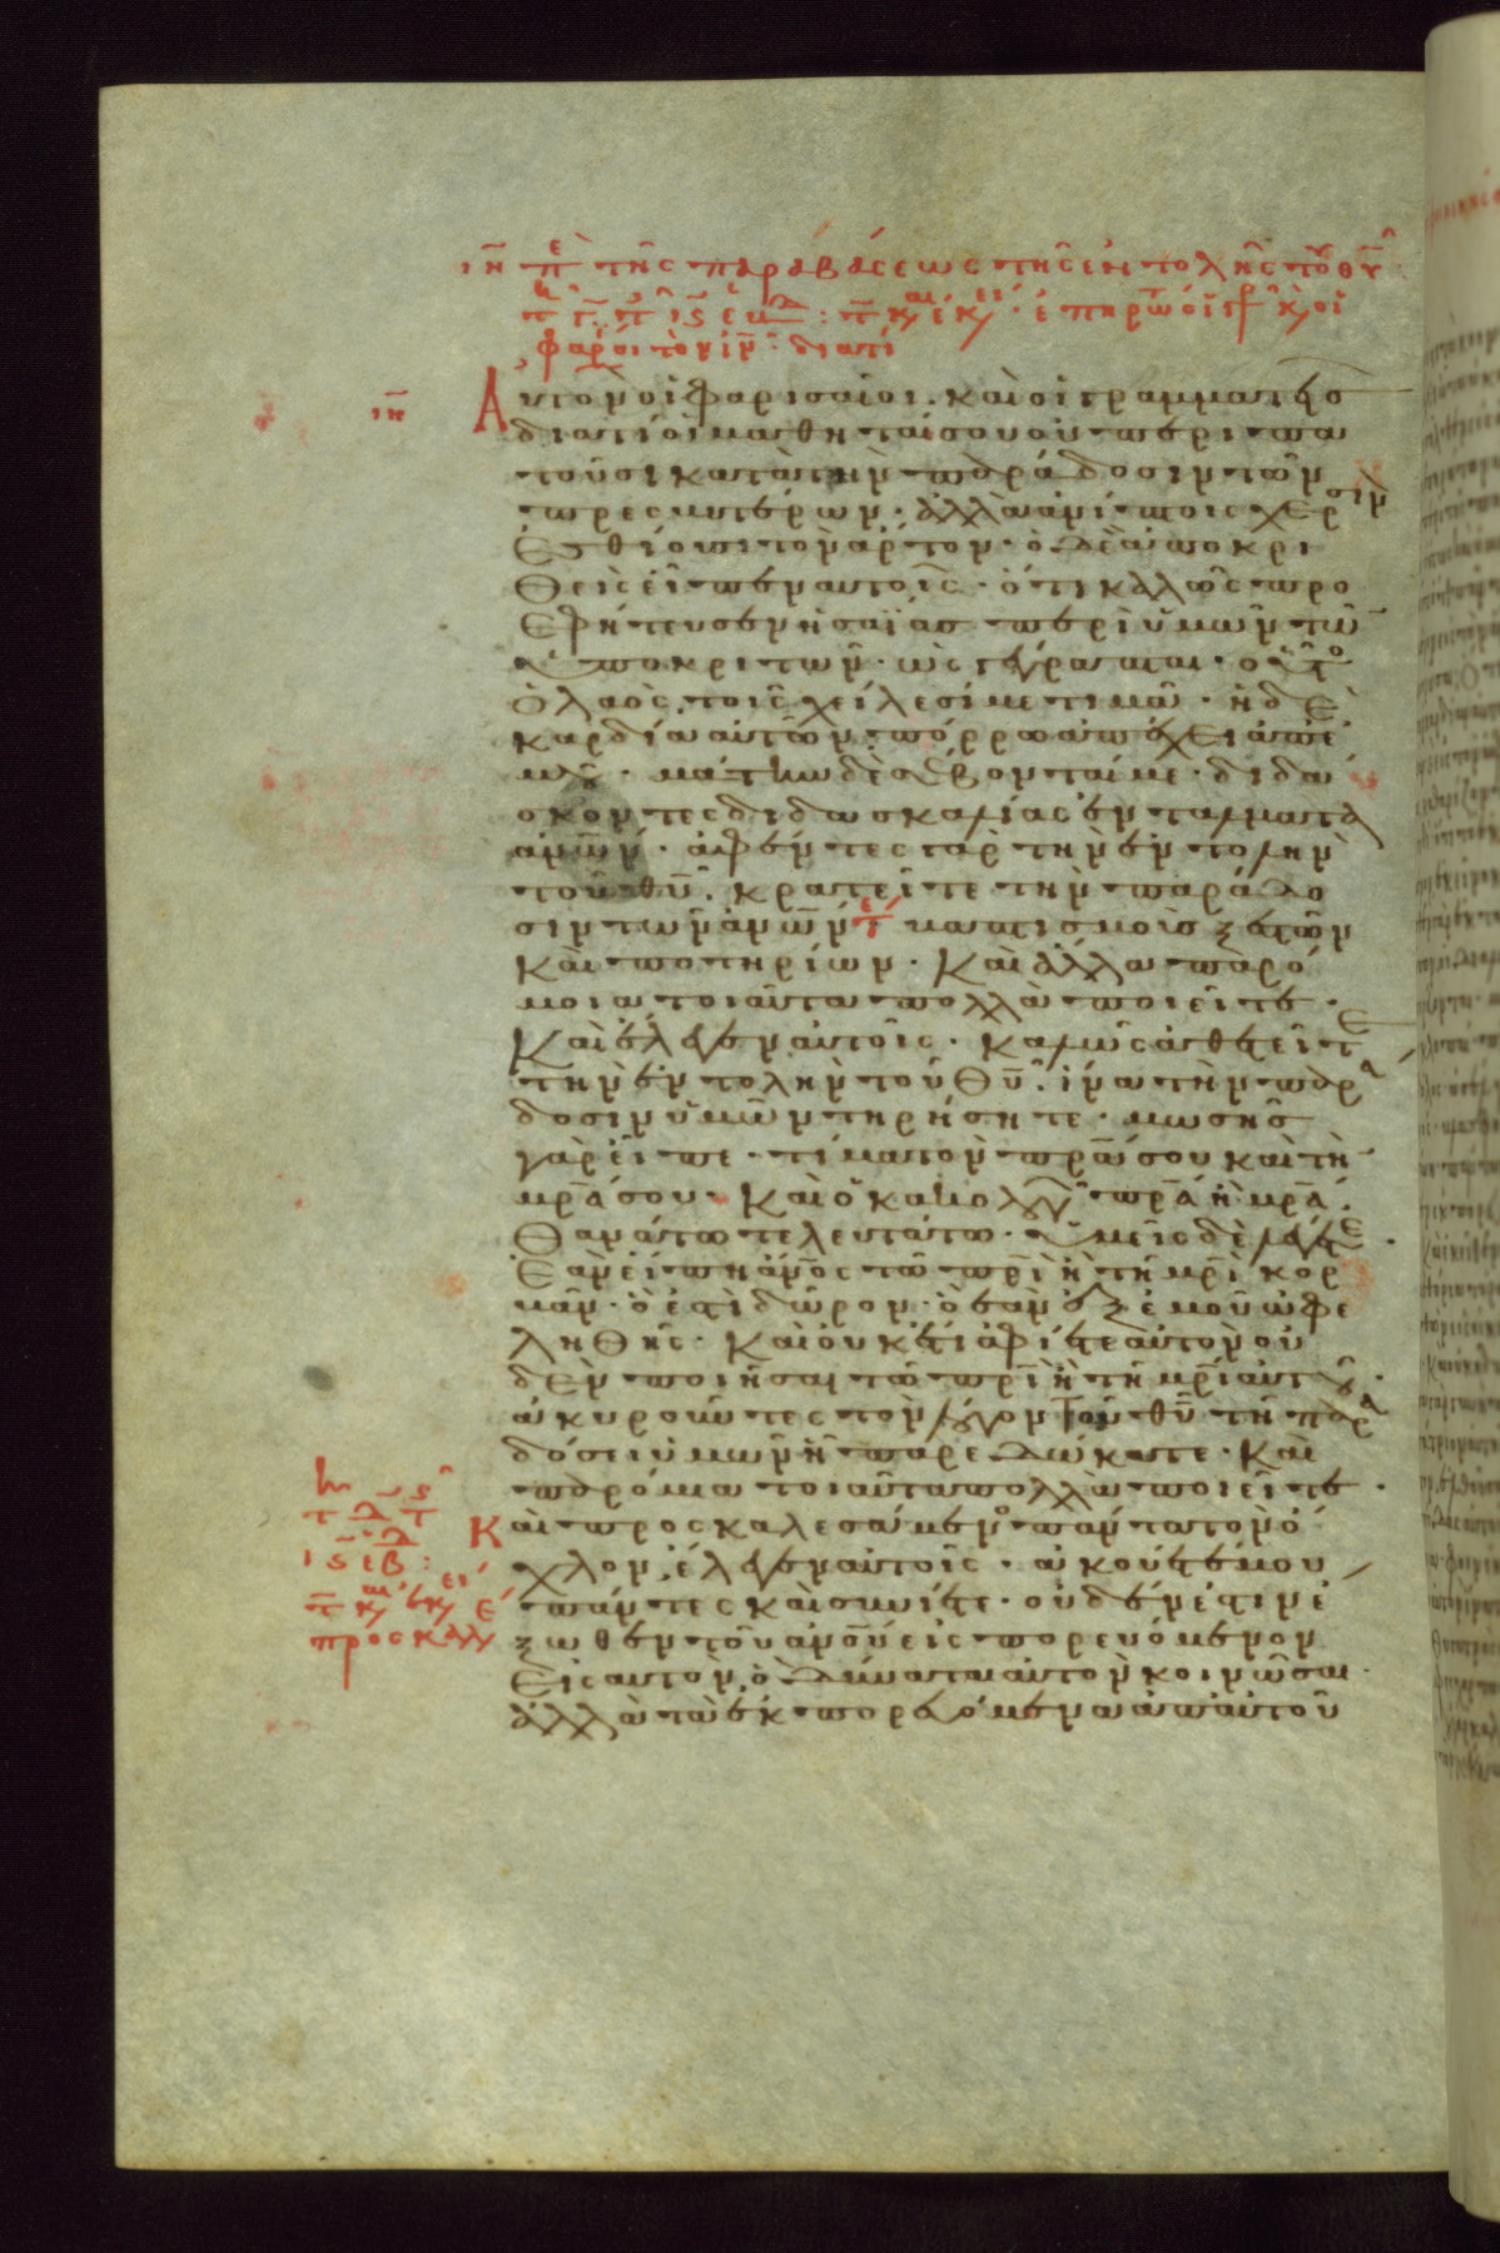 ιη πε τῆς παραβάσεως τῆς ἐντολῆς τοῦ θυ
φαρ οι τὸν ιν διατί
ιη Αυτὸν οἱ φαρισαῖοι. καὶ οἱ γραμματεῖσ
διατί οἱ μαθηταί σου οὐ περιπα
τοῦσι κατὰ τὴν παράδοσιν τῶν
πρεσβυτέρων. ἀλλὰ ἀνίπτοις χερσὶν
ἐσθίουσι τὸν ἄρτον. ὁ δὲ ἀποκρι
θεὶς εἶπεν αὐτοῖς. ὅτι καλῶς προ
εφήτευσεν ἡσαΐασ περὶ ὑμῶν τῶ
ὑποκριτῶν. ὡς γέγραπται. οὗτο
ὁ λαὸς τοῖς χείλεσί με τιμᾶ. ἡ δὲ
καρδία αὐτῶν πόρρω ἀπέχει ἀπ ἐ
μοῦ. μάτην δὲ σέβονταί με. διδά
σκοντες διδασκαλίας ἐντάλματα
ἀνων. ἀφέντες γὰρ τὴν ἐντολὴν
τοῦ θυ. κρατεῖτε τὴν παράδο
σιν τῶν ἀνων βαπτισμοὺσ ξεστῶν
καὶ ποτηρίων. Καὶ ἄλλα παρό
μοια τοιαῦτα πολλὰ ποιεῖτε.
Καὶ ἔλεγεν αὐτοῖς. καλῶς ἀθετεῖτε
τὴν ἐντολὴν τοῦ θυ. ἵνα τὴν παρά
δοσιν ὑμῶν τηρήσητε. μωσῆσ
γὰρ εἶπε. τίμα τὸν πρα σου καὶ τὴ
μρα σου. Καὶ ὁ κακολογῶν πρα ἢ μρα.
θανάτω τελευτάτω. ὑμεῖς δὲ λέγετε.
Ἐὰν εἴπη ἀνος τῶ πρι ἢ τῆ μρι κορ
βᾶν. ὅ ἐστι δῶρον. ὃ ἐὰν ἐξ ἐμοῦ ὠφε
ληθῆς. Καὶ οὐκέτι ἀφίετε αὐτὸν οὐ
δὲν ποιῆσαι τῶ πρι ἢ τῆ μρι αὐτοῦ.
ἀκυροῦντες τὸν λόγον τοῦ θυ τῆ παρα
δόσει ὑμῶν ἧ παρεδώκατε. Καὶ
παρόμοια τοιαῦτα πολλὰ ποιεῖτε.
Καὶ προσκαλεσάμενος πάντα τὸν ὄ
χλον, ἔλεγεν αὐτοῖς. ἀκούετέ μου
πάντες καὶ συνίετε. οὐδέν ἐστιν ἔ
ξωθεν τοῦ ἀνου εἰσπορευόμενον
εἰς αὐτὸν, ὃ δύναται αὐτὸν κοινῶσαι.
ἀλλὰ τὰ ἐκπορευόμενα ἀπ αὐτοῦ